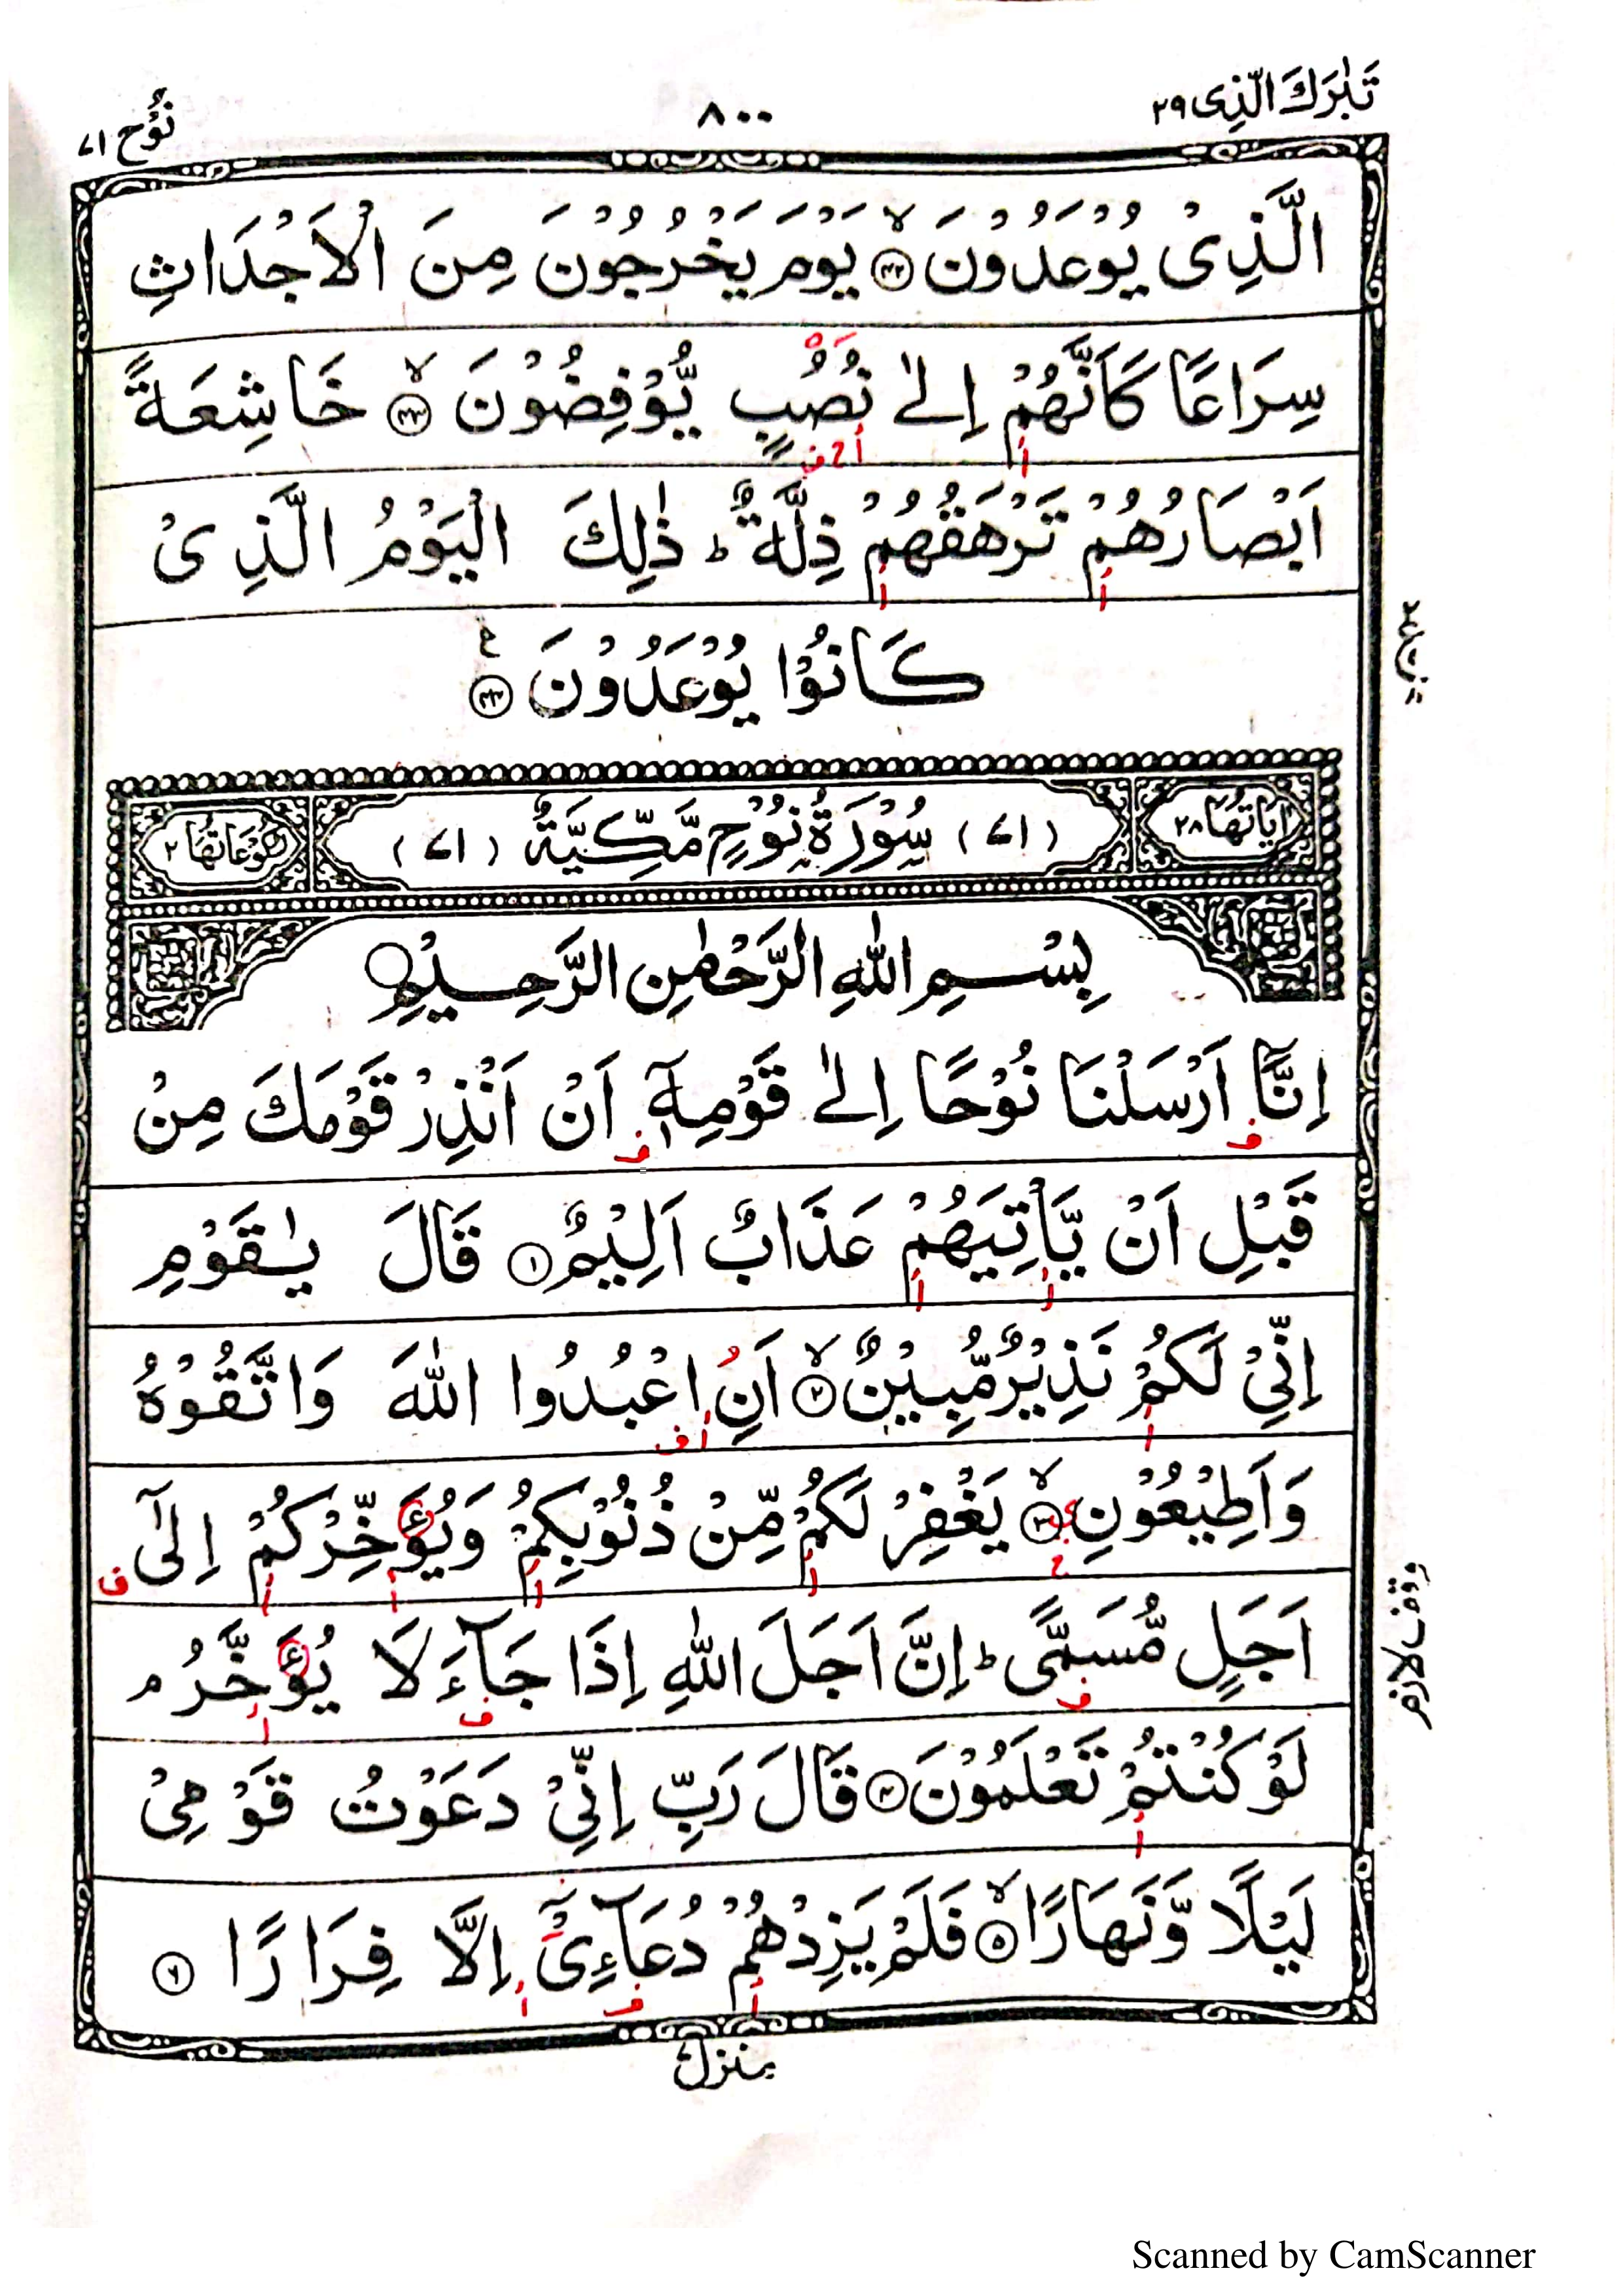 تَبٰرَكَ الَّذِى ٢٩
٨٠٠
نُوْح ٧١
الَّذِىْ يُوْعَدُوْنَ ۙ ﴿٤٢﴾ يَوْمَ يَخْرُجُوْنَ مِنَ الْاَجْدَاثِ
سِرَاعًا كَاَنَّهُمْ اِلٰى نُصُبٍ يُّوْفِضُوْنَ ۙ ﴿٤٣﴾ خَاشِعَةً
اَبْصَارُهُمْ تَرْهَقُهُمْ ذِلَّةٌ ؕ ذٰلِكَ الْيَوْمُ الَّذِىْ
كَانُوْا يُوْعَدُوْنَ ﴿٤٤﴾ ع
اٰيَاتُهَا ٢٨
(٧١) سُوْرَةُ نُوْحٍ مَّكِّيَّةٌ (٧١)
رُكُوْعَاتُهَا ٢
بِسْمِ اللّٰهِ الرَّحْمٰنِ الرَّحِيْمِ
اِنَّآ اَرْسَلْنَا نُوْحًا اِلٰى قَوْمِهٖٓ اَنْ اَنْذِرْ قَوْمَكَ مِنْ
قَبْلِ اَنْ يَّاْتِيَهُمْ عَذَابٌ اَلِيْمٌ ﴿١﴾ قَالَ يٰقَوْمِ
اِنِّىْ لَكُمْ نَذِيْرٌ مُّبِيْنٌ ۙ ﴿٢﴾ اَنِ اعْبُدُوا اللّٰهَ وَاتَّقُوْهُ
وَاَطِيْعُوْنِ ۙ ﴿٣﴾ يَغْفِرْ لَكُمْ مِّنْ ذُنُوْبِكُمْ وَيُؤَخِّرْكُمْ اِلٰٓى
اَجَلٍ مُّسَمًّى ؕ اِنَّ اَجَلَ اللّٰهِ اِذَا جَآءَ لَا يُؤَخَّرُ ۘ
لَوْ كُنْتُمْ تَعْلَمُوْنَ ﴿٤﴾ قَالَ رَبِّ اِنِّىْ دَعَوْتُ قَوْمِىْ
لَيْلًا وَّنَهَارًا ۙ ﴿٥﴾ فَلَمْ يَزِدْهُمْ دُعَآءِىْٓ اِلَّا فِرَارًا ﴿٦﴾
وقف لازم
منزل ٧
Scanned by CamScanner